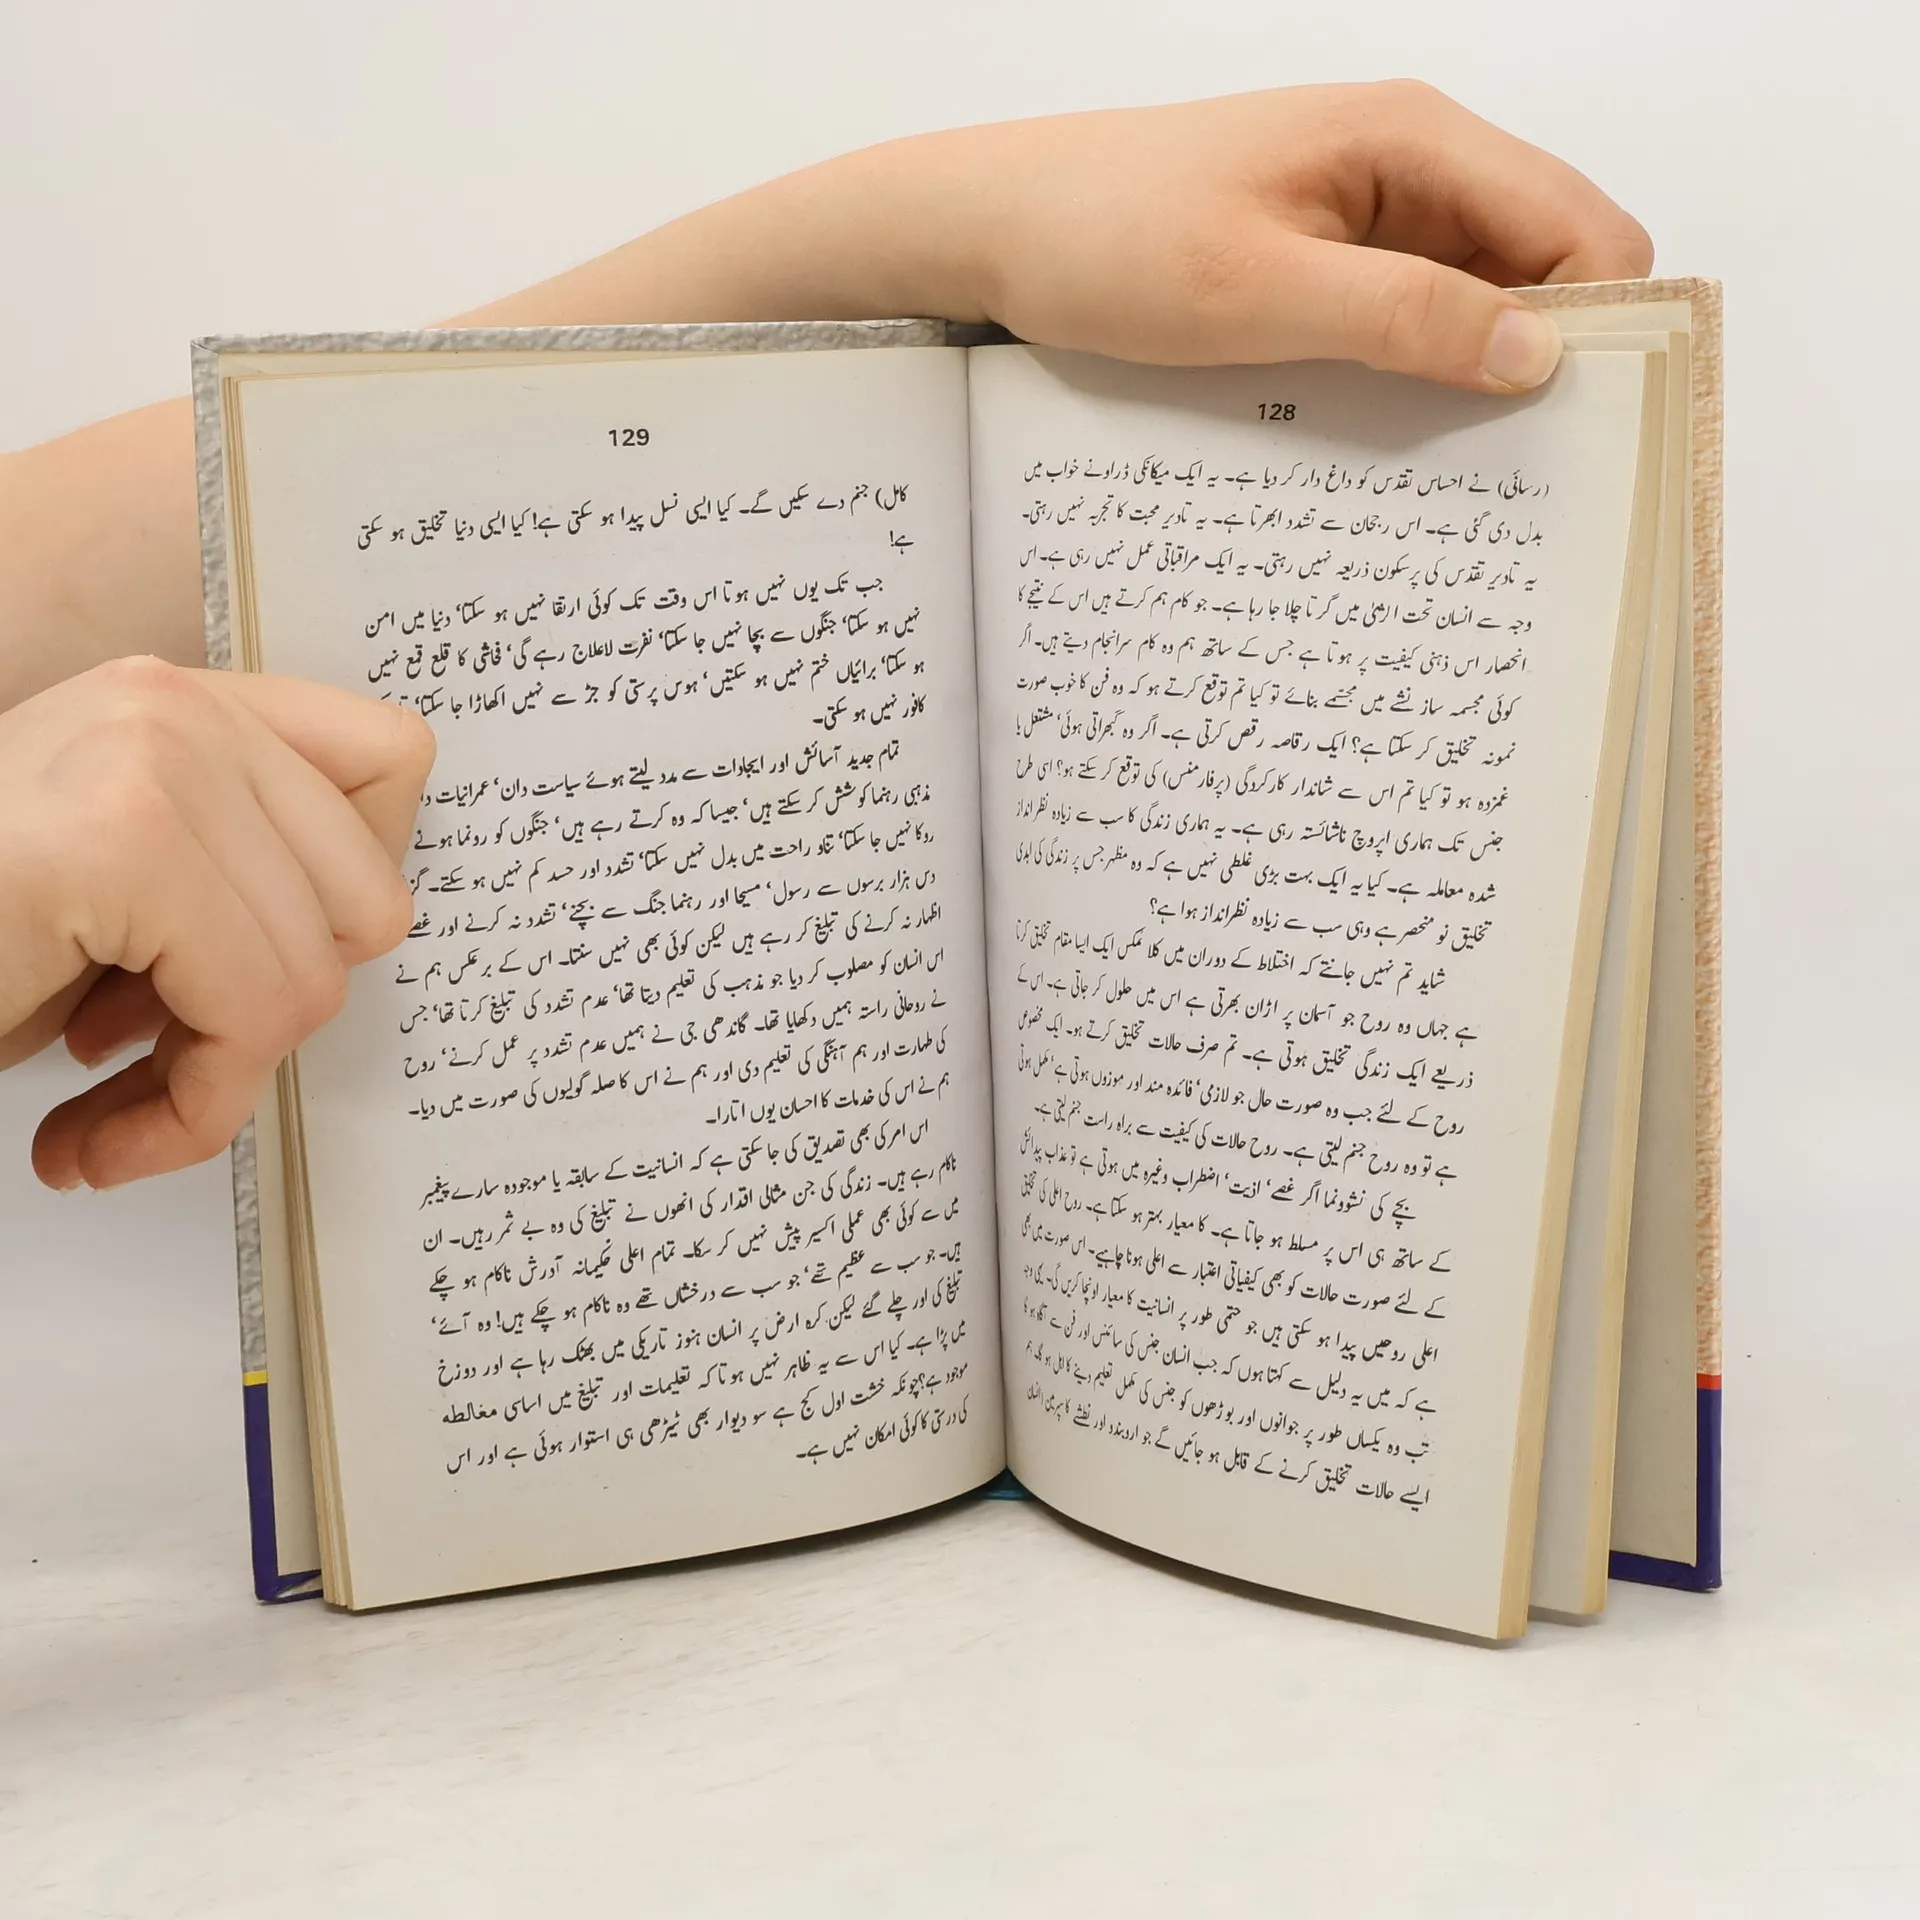 128
(رسائی) نے احساس تقدس کو داغ دار کر دیا ہے۔ یہ ایک میکانکی ڈراونے خواب میں
بدل دی گئی ہے۔ اس رجحان سے تشدد ابھرتا ہے۔ یہ تادیر محبت کا تجربہ نہیں رہتی۔
یہ تادیر تقدس کی پرسکون ذریعہ نہیں رہتی۔ یہ ایک مراقباتی عمل نہیں رہی ہے۔ اس
وجہ سے انسان تحت الثریٰ میں گرتا چلا جا رہا ہے۔ جو کام ہم کرتے ہیں اس کے نتیجے کا
انحصار اس ذہنی کیفیت پر ہوتا ہے جس کے ساتھ ہم وہ کام سرانجام دیتے ہیں۔ اگر
کوئی مجسمہ ساز نشے میں مجسّمے بنائے تو کیا تم توقع کرتے ہو کہ وہ فن کا خوب صورت
نمونہ تخلیق کر سکتا ہے؟ ایک رقاصہ رقص کرتی ہے۔ اگر وہ گھبراتی ہوئی‘ مشتعل یا
غمزدہ ہو تو کیا تم اس سے شاندار کارکردگی (پرفارمنس) کی توقع کر سکتے ہو؟ اسی طرح
جنس تک ہماری اپروچ ناشائستہ رہی ہے۔ یہ ہماری زندگی کا سب سے زیادہ نظرانداز
شدہ معاملہ ہے۔ کیا یہ ایک بہت بڑی غلطی نہیں ہے کہ وہ مظہر جس پر زندگی کی ابدی
تخلیق نو منحصر ہے وہی سب سے زیادہ نظرانداز ہوا ہے؟
شاید تم نہیں جانتے کہ اختلاط کے دوران میں کلائمکس ایک ایسا مقام تخلیق کرتا
ہے جہاں وہ روح جو آسمان پر اڑان بھرتی ہے اس میں حلول کر جاتی ہے۔ اس کے
ذریعے ایک زندگی تخلیق ہوتی ہے۔ تم صرف حالات تخلیق کرتے ہو۔ ایک مخصوص
روح کے لئے جب وہ صورت حال جو لازمی‘ فائدہ مند اور موزوں ہوتی ہے‘ مکمل ہوتی
ہے تو وہ روح جنم لیتی ہے۔ روح حالات کی کیفیت سے براہ راست جنم لیتی ہے۔
بچے کی نشوونما اگر غصے‘ اذیت‘ اضطراب وغیرہ میں ہوتی ہے تو عذاب پیدائش
کے ساتھ ہی اس پر مسلط ہو جاتا ہے۔ کا معیار بہتر ہو سکتا ہے۔ روح اعلیٰ کی تخلیق
کے لئے صورت حالات کو بھی کیفیاتی اعتبار سے اعلی ہونا چاہیے۔ اس صورت میں بھی
اعلی روحیں پیدا ہو سکتی ہیں جو حتمی طور پر انسانیت کا معیار اونچا کریں گی۔ یہی وجہ
ہے کہ میں یہ دلیل سے کہتا ہوں کہ جب انسان جنس کی سائنس اور فن سے آگاہ ہو گا
تب وہ یکساں طور پر جوانوں اور بوڑھوں کو جنس کی مکمل تعلیم دینے کا اہل ہو گا۔ ہم
ایسے حالات تخلیق کرنے کے قابل ہو جائیں گے جو اروبندو اور نطشے کا سپرمین (انسان
129
کامل) جنم دے سکیں گے۔ کیا ایسی نسل پیدا ہو سکتی ہے! کیا ایسی دنیا تخلیق ہو سکتی
ہے!
جب تک یوں نہیں ہوتا اس وقت تک کوئی ارتقا نہیں ہو سکتا‘ دنیا میں امن
نہیں ہو سکتا‘ جنگوں سے بچا نہیں جا سکتا‘ نفرت لاعلاج رہے گی‘ فحاشی کا قلع قمع نہیں
ہو سکتا‘ برائیاں ختم نہیں ہو سکتیں‘ ہوس پرستی کو جڑ سے نہیں اکھاڑا جا سکتا‘
کافور نہیں ہو سکتی۔
تمام جدید آسائش اور ایجادات سے مدد لیتے ہوئے سیاست دان‘ عمرانیات
مذہبی رہنما کوشش کر سکتے ہیں‘ جیسا کہ وہ کرتے رہے ہیں‘ جنگوں کو رونما ہونے
روکا نہیں جا سکتا‘ تناو راحت میں بدل نہیں سکتا‘ تشدد اور حسد کم نہیں ہو سکتے۔
دس ہزار برسوں سے رسول‘ مسیحا اور رہنما جنگ سے بچنے‘ تشدد نہ کرنے اور غصے
اظہار نہ کرنے کی تبلیغ کر رہے ہیں لیکن کوئی بھی نہیں سنتا۔ اس کے برعکس ہم نے
اس انسان کو مصلوب کر دیا جو مذہب کی تعلیم دیتا تھا‘ عدم تشدد کی تبلیغ کرتا تھا‘ جس
نے روحانی راستہ ہمیں دکھایا تھا۔ گاندھی جی نے ہمیں عدم تشدد پر عمل کرنے‘ روح
کی طہارت اور ہم آہنگی کی تعلیم دی اور ہم نے اس کا صلہ گولیوں کی صورت میں دیا۔
ہم نے اس کی خدمات کا احسان یوں اتارا۔
اس امر کی بھی تصدیق کی جا سکتی ہے کہ انسانیت کے سابقہ یا موجودہ سارے پیغمبر
ناکام رہے ہیں۔ زندگی کی جن مثالی اقدار کی انھوں نے تبلیغ کی وہ بے ثمر رہیں۔ ان
میں سے کوئی بھی عملی اکسیر پیش نہیں کر سکا۔ تمام اعلی حکیمانہ آدرش ناکام ہو چکے
ہیں۔ جو سب سے عظیم تھے‘ جو سب سے درخشاں تھے وہ ناکام ہو چکے ہیں! وہ آئے‘
تبلیغ کی اور چلے گئے لیکن کرہ ارض پر انسان ہنوز تاریکی میں بھٹک رہا ہے اور دوزخ
میں پڑا ہے۔ کیا اس سے یہ ظاہر نہیں ہوتا کہ تعلیمات اور تبلیغ میں اساسی مغالطہ
موجود ہے؟ چونکہ خشت اول کج ہے سو دیوار بھی ٹیڑھی ہی استوار ہوئی ہے اور اس
کی درستی کا کوئی امکان نہیں ہے۔